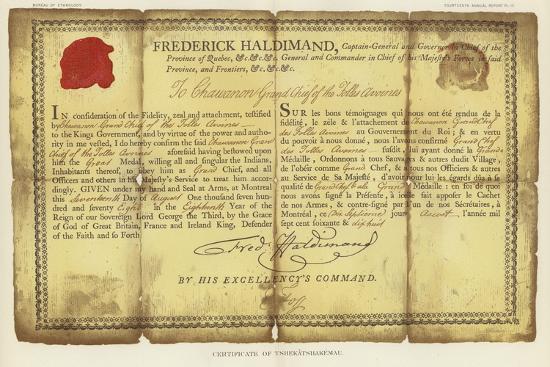 BUREAU OF ETHNOLOGY
FOURTEENTH ANNUAL REPORT PL.
FREDERICK HALDIMAND, Captain-General and Governor in Chief of the
Province of Quebec, &c. &c. &c. General and Commander in Chief of his Majesty's Forces in said
Province, and Frontiers, &c. &c. &c.
To Chawanon Grand Chief of the Folles Avoines
IN consideration of the Fidelity, zeal and attachment, testified
by Chawanon Grand Chief of the Folles Avoines
to the King's Government, and by virtue of the power and author-
ity in me vested, I do hereby confirm the said Chawanon Grand
Chief of the Folles Avoines aforesaid having bestowed upon
him the Great Medal, willing all and singular the Indians,
Inhabitants thereof, to obey him as Grand Chief, and all
Officers and others in his Majesty's Service to treat him accor-
dingly. GIVEN under my hand and Seal at Arms, at Montreal
this Seventeenth Day of August One thousand seven hun-
dred and seventy Eight in the Eighteenth Year of the
Reign of our Sovereign Lord George the Third, by the Grace
of God of Great Britain, France and Ireland King, Defender
of the Faith and so Forth.
SUR les bons témoignages qui nous ont été rendus de la
fidélité, le zele & l'attachement de Chawanon Grand Chef
des Folles Avoines au Gouvernement du Roi; & en vertu
du pouvoir à nous donné, nous l'avons confirmé Grand Chef
des Folles Avoines lui ayant accordé la Grande
Médaille, Ordonnons à tous Sauvages & autres dudit Village,
de l'obéir comme Grand Chef, & à tous nos Officiers & autres
au Service de Sa Majesté, d'avoir pour lui les égards dûs à la
qualité de Grand Chef de la Grande Médaille; en foi de quoi
nous avons signé la Présente, à icelle fait appofer le Cachet
de nos Armes, & contre-signé par l'un de nos Sécrétaires, à
Montréal, ce Dix Septieme jour d' Aoust l'année mil
sept cent soixante & dixhuit
Fred Haldimand
BY HIS EXCELLENCY'S COMMAND.
CERTIFICATE OF TSHEKÂTSHAKEMAU.